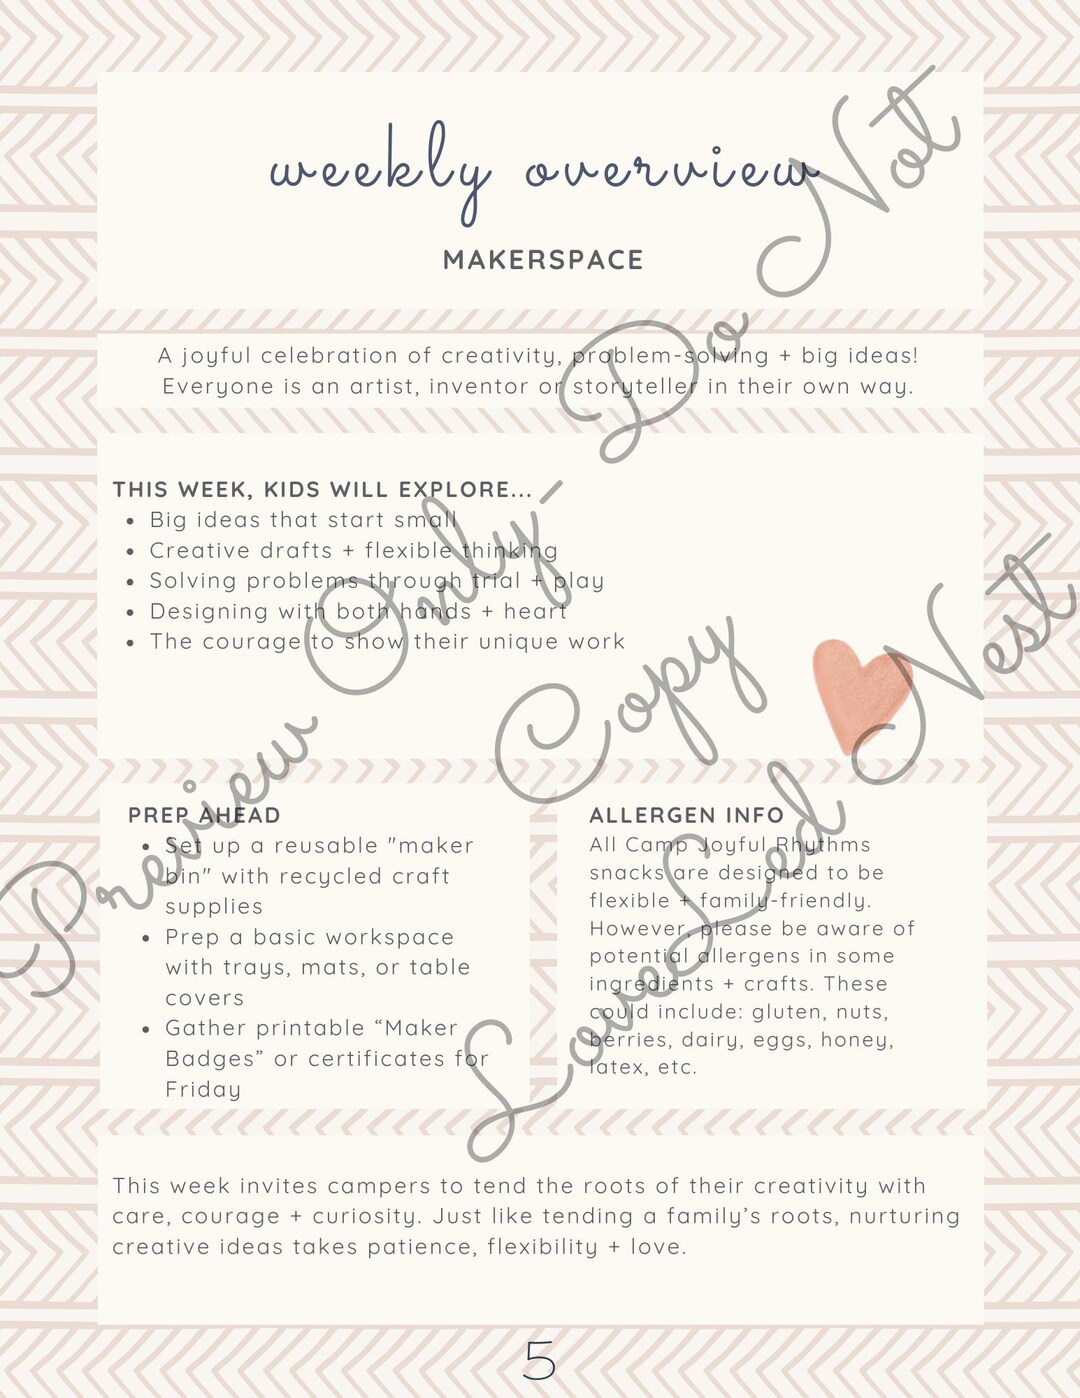 weekly overview
MAKERSPACE
A joyful celebration of creativity, problem-solving + big ideas!
Everyone is an artist, inventor or storyteller in their own way.
THIS WEEK, KIDS WILL EXPLORE...
• Big ideas that start small
• Creative drafts + flexible thinking
• Solving problems through trial + play
• Designing with both hands + heart
• The courage to show their unique work
PREP AHEAD
• Set up a reusable "maker
bin" with recycled craft
supplies
• Prep a basic workspace
with trays, mats, or table
covers
• Gather printable “Maker
Badges” or certificates for
Friday
ALLERGEN INFO
All Camp Joyful Rhythms
snacks are designed to be
flexible + family-friendly.
However, please be aware of
potential allergens in some
ingredients + crafts. These
could include: gluten, nuts,
berries, dairy, eggs, honey,
latex, etc.
This week invites campers to tend the roots of their creativity with
care, courage + curiosity. Just like tending a family’s roots, nurturing
creative ideas takes patience, flexibility + love.
5
Preview Only- Do Not
Copy
LoveLed Nest